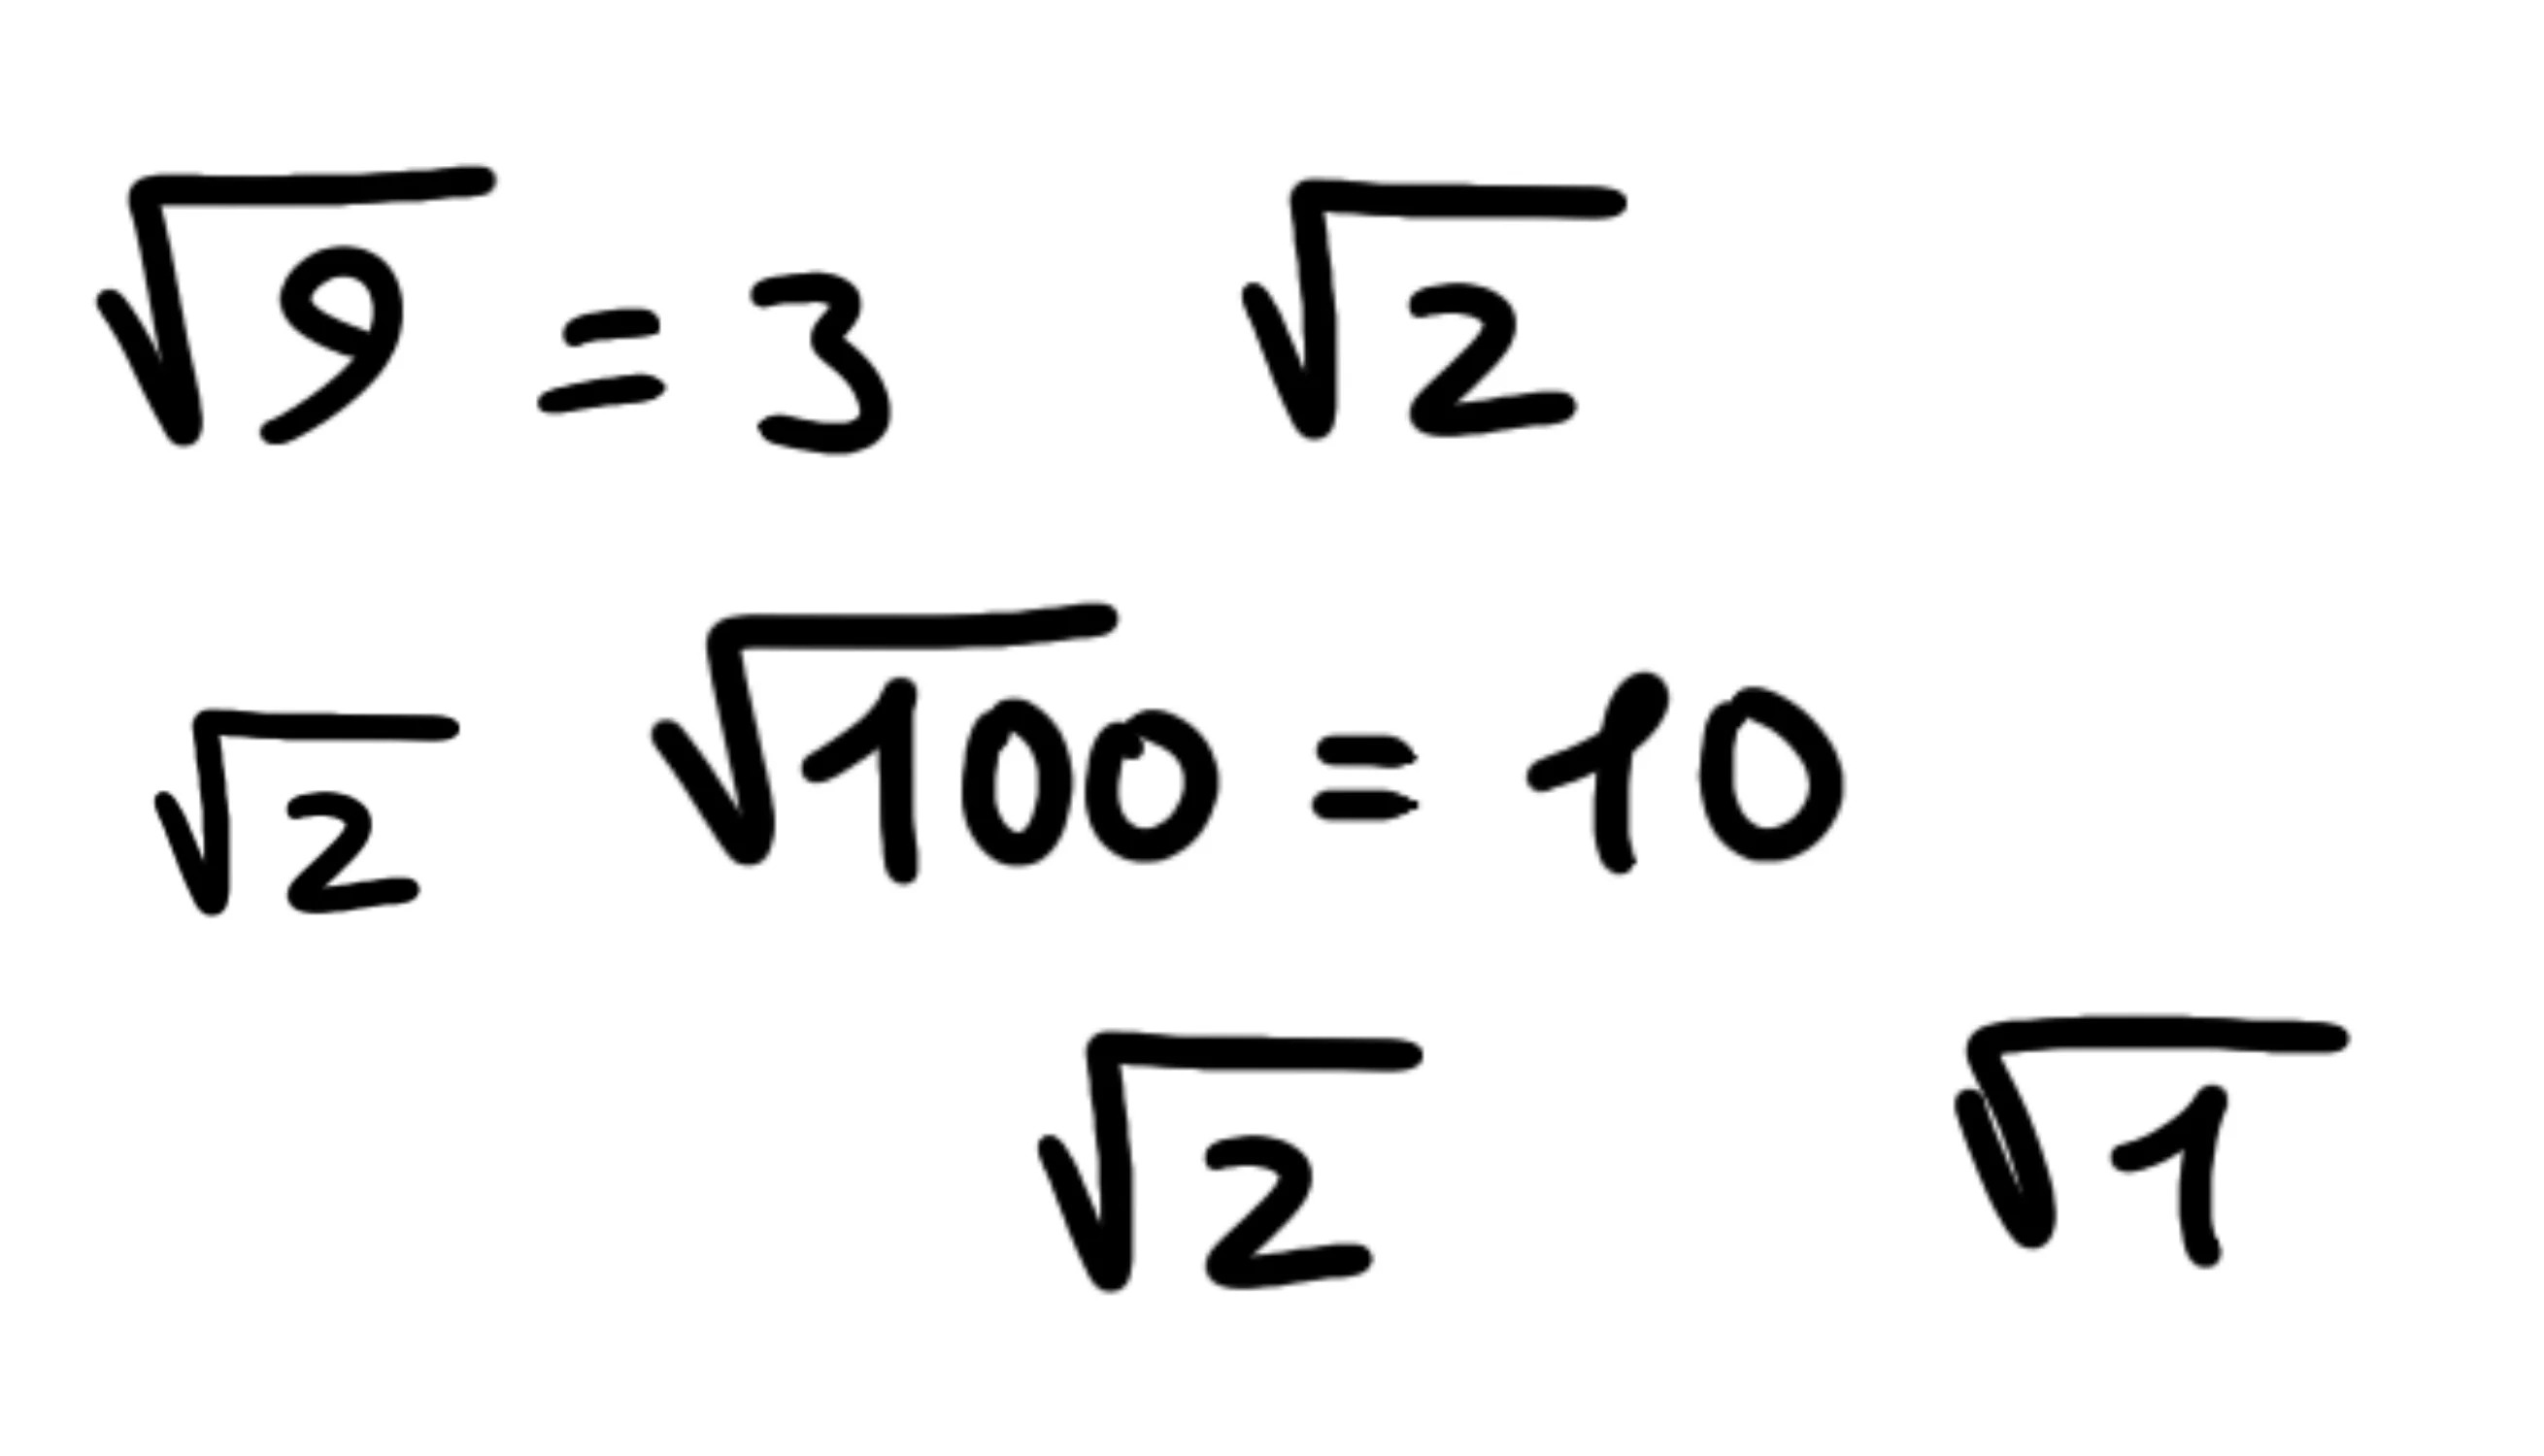 √9 = 3 √2
√2 √100 = 10
√2 √1